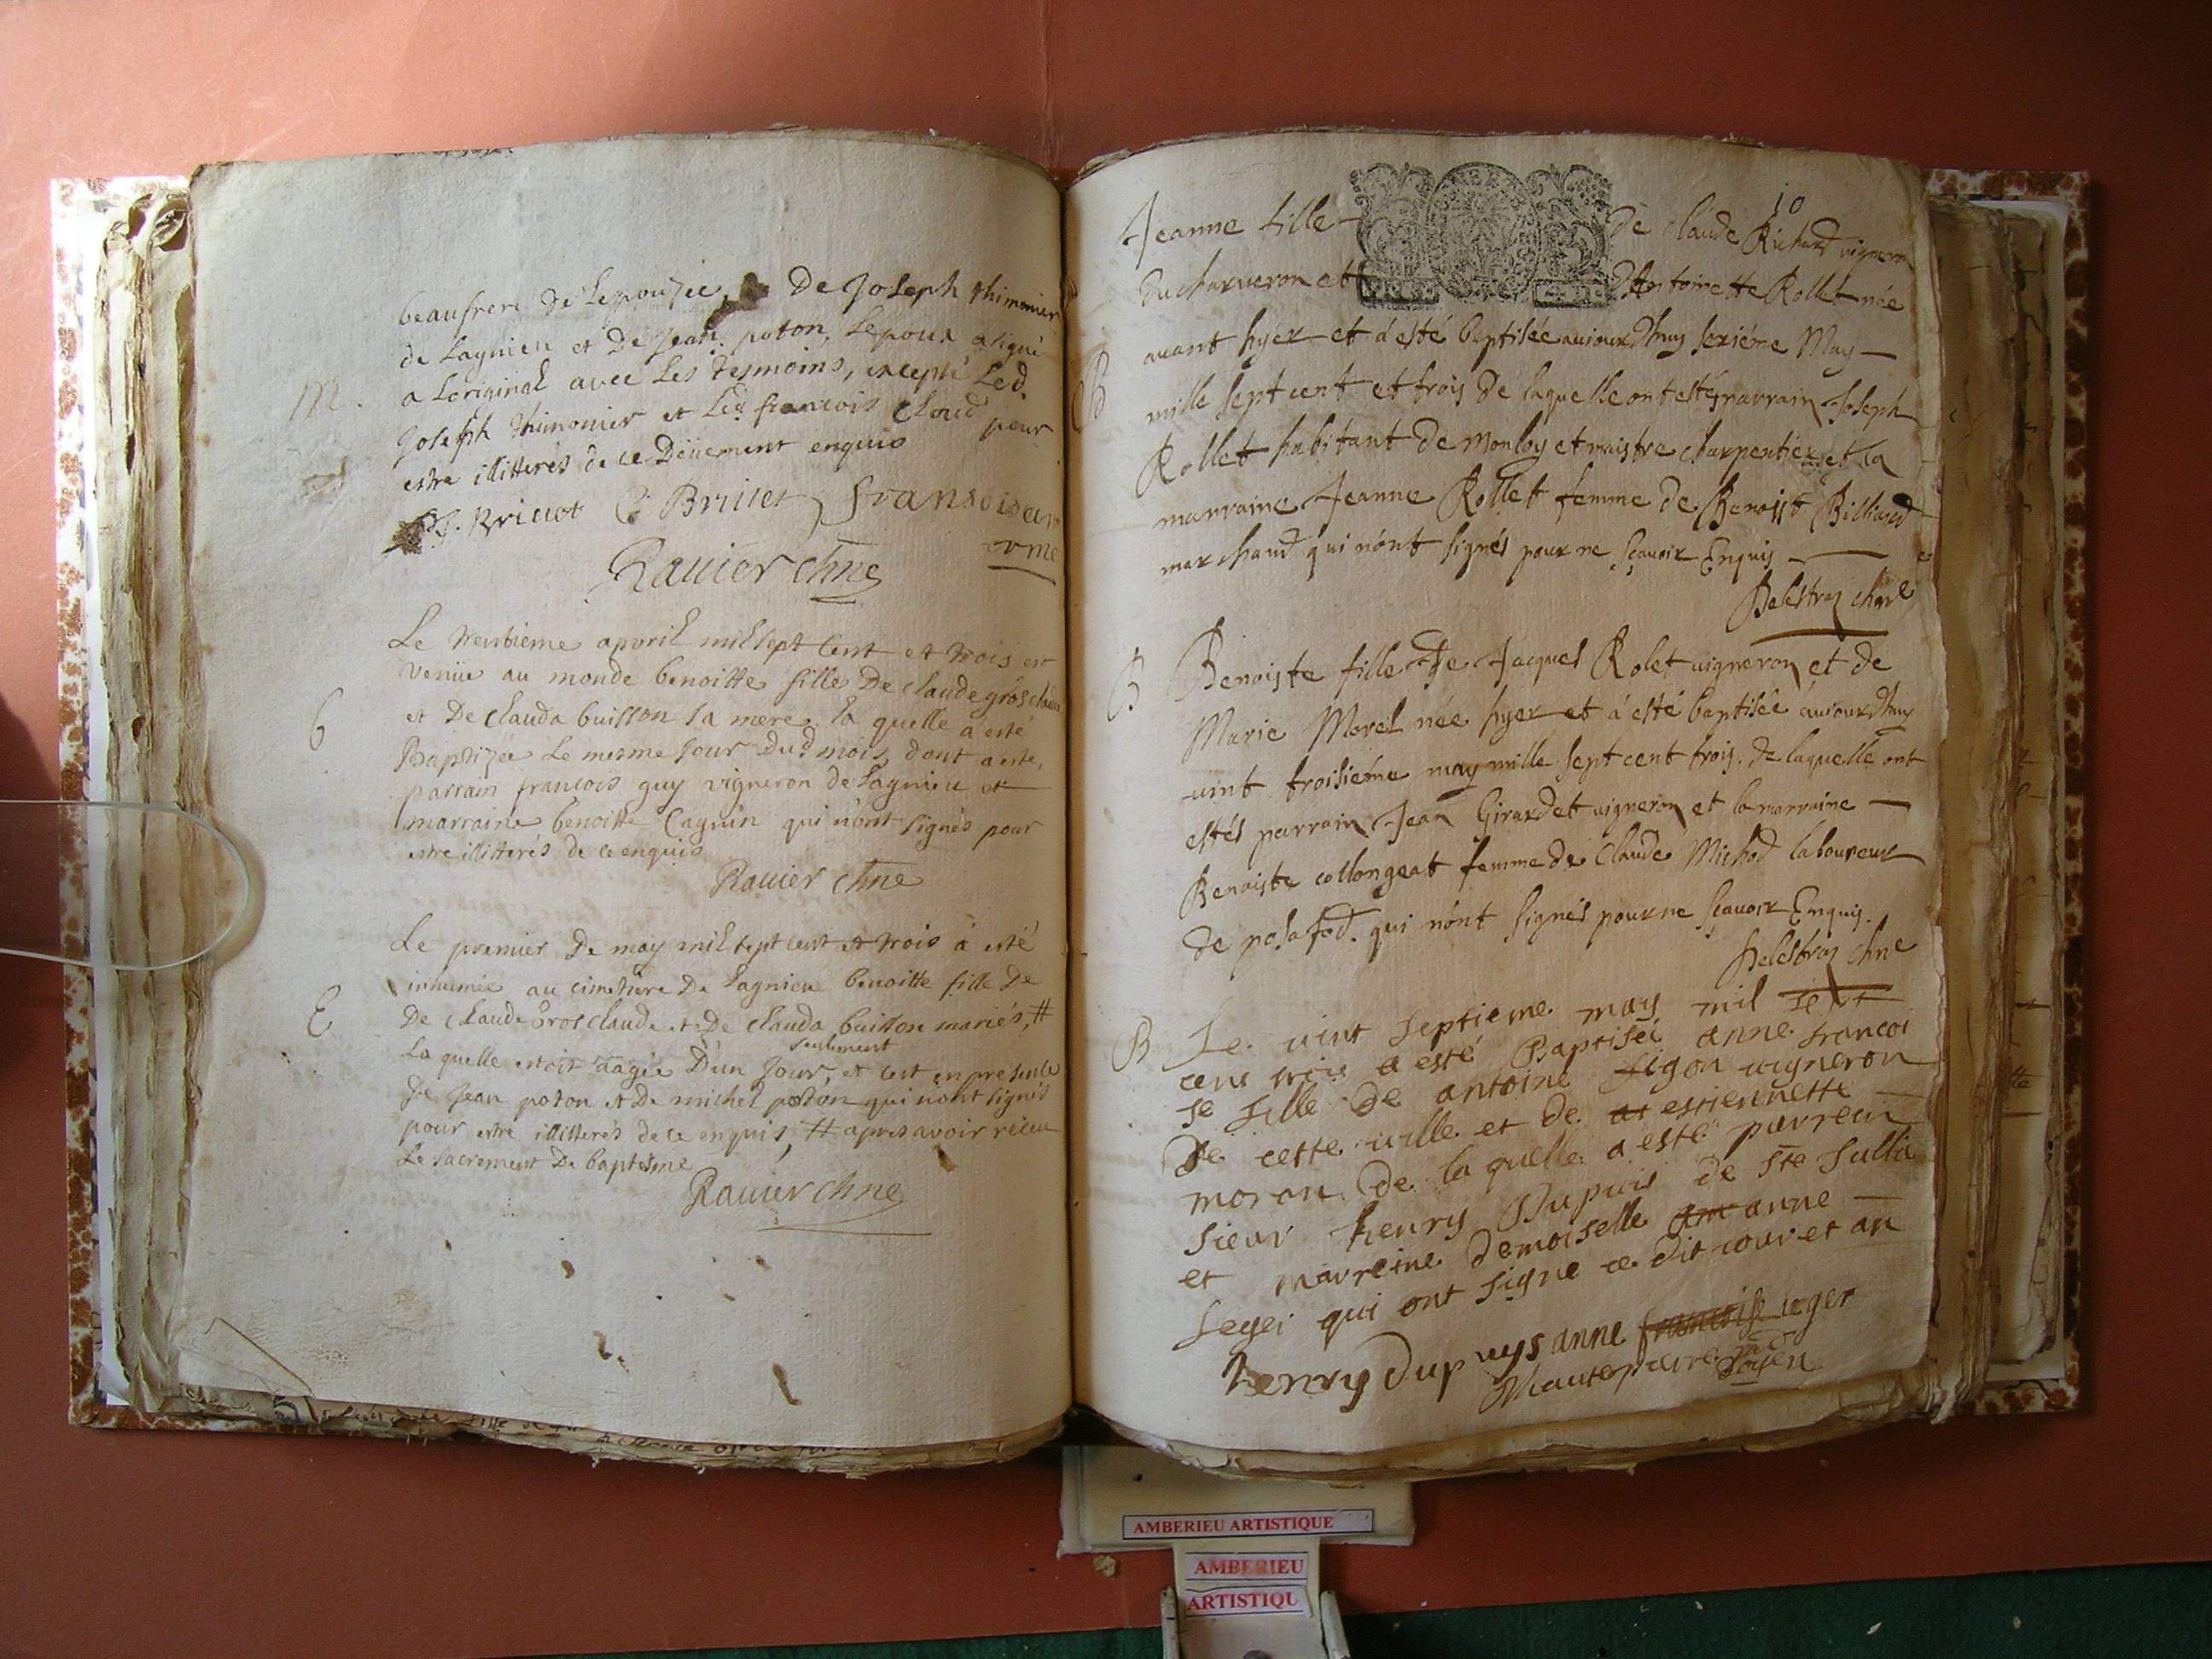 beaufrere de Lepouzée, De Joseph thimonier
de Lagnieu et De Jean poton, Lepoux a signé
M.
a Loriginal avec Les tesmoins, excepté Led.
Joseph thimonier et Led francois Cloud pour
estre illitterés de ce Deüement enquis
J. Brivot C Brunet fransoi
orme
Ravier chne
Le trentieme apvril mil sept Cent et trois est
venüe au monde benoitte fille De claude gros claude
6
et De Clauda buisson sa mere. la quelle a esté
Baptizée Le mesme Jour Dud mois, dont a esté,
parrain francois guy vigneron de Lagnieu et
marraine benoitte Cagnin qui n'ont signés pour
estre illitterés de ce enquis
Ravier chne
Le premier De may mil sept cent et trois à esté
inhumée au cimetiere De Lagnieu benoitte fille de
E
De Claude Gros claude et De Clauda buisson mariés, #
seulement
La quelle estoit aagée D'un Jour, et cest en presence
de Jean poton et De michel poton qui n'ont signés
pour estre illitterés de ce enquis, # apres avoir receu
Le sacrement De baptesme
Ravier chne
10
Jeanne fille de Claude Richard vigneron
du charveron et d'Antoinette Rollet née
avant hyer et à esté baptisée aujourdhuy seziéme May
B
mille sept cent et trois de laquelle ont estés parrain Joseph
Rollet habitant de Monloy et maistre charpentier et la
marraine Jeanne Rollet femme de Benoist Billiard
marchand qui n'ont signés pour ne sçavoir Enquis
Delestraz chne
B
Benoiste fille de Jacques Rolet vigneron et de
Marie Morel née hyer et à esté baptisée aujourdhuy
vint troisiéme may mille sept cent trois. de laquelle ont
estés parrain Jean Girardet vigneron et la marraine
Benoiste collongeat femme de Claude Michod laboureur
de posafod. qui n'ont signés pour ne sçavoir Enquis.
Delestraz chne
B
Le vint septieme may mil sept
cens trois a esté Baptisei anne francoi
se fille de antoine figon vigneron
de cette ville et de at estiennette
moran de la quelle a esté parrein
sieur henry Dupuis de ste Jullie
et marreine demoiselle am anne
legei qui ont signe ce dit jour et an
henry dupuys anne francoise leger
Mautepierre
doyen
AMBERIEU ARTISTIQUE
AMBERIEU
ARTISTIQU